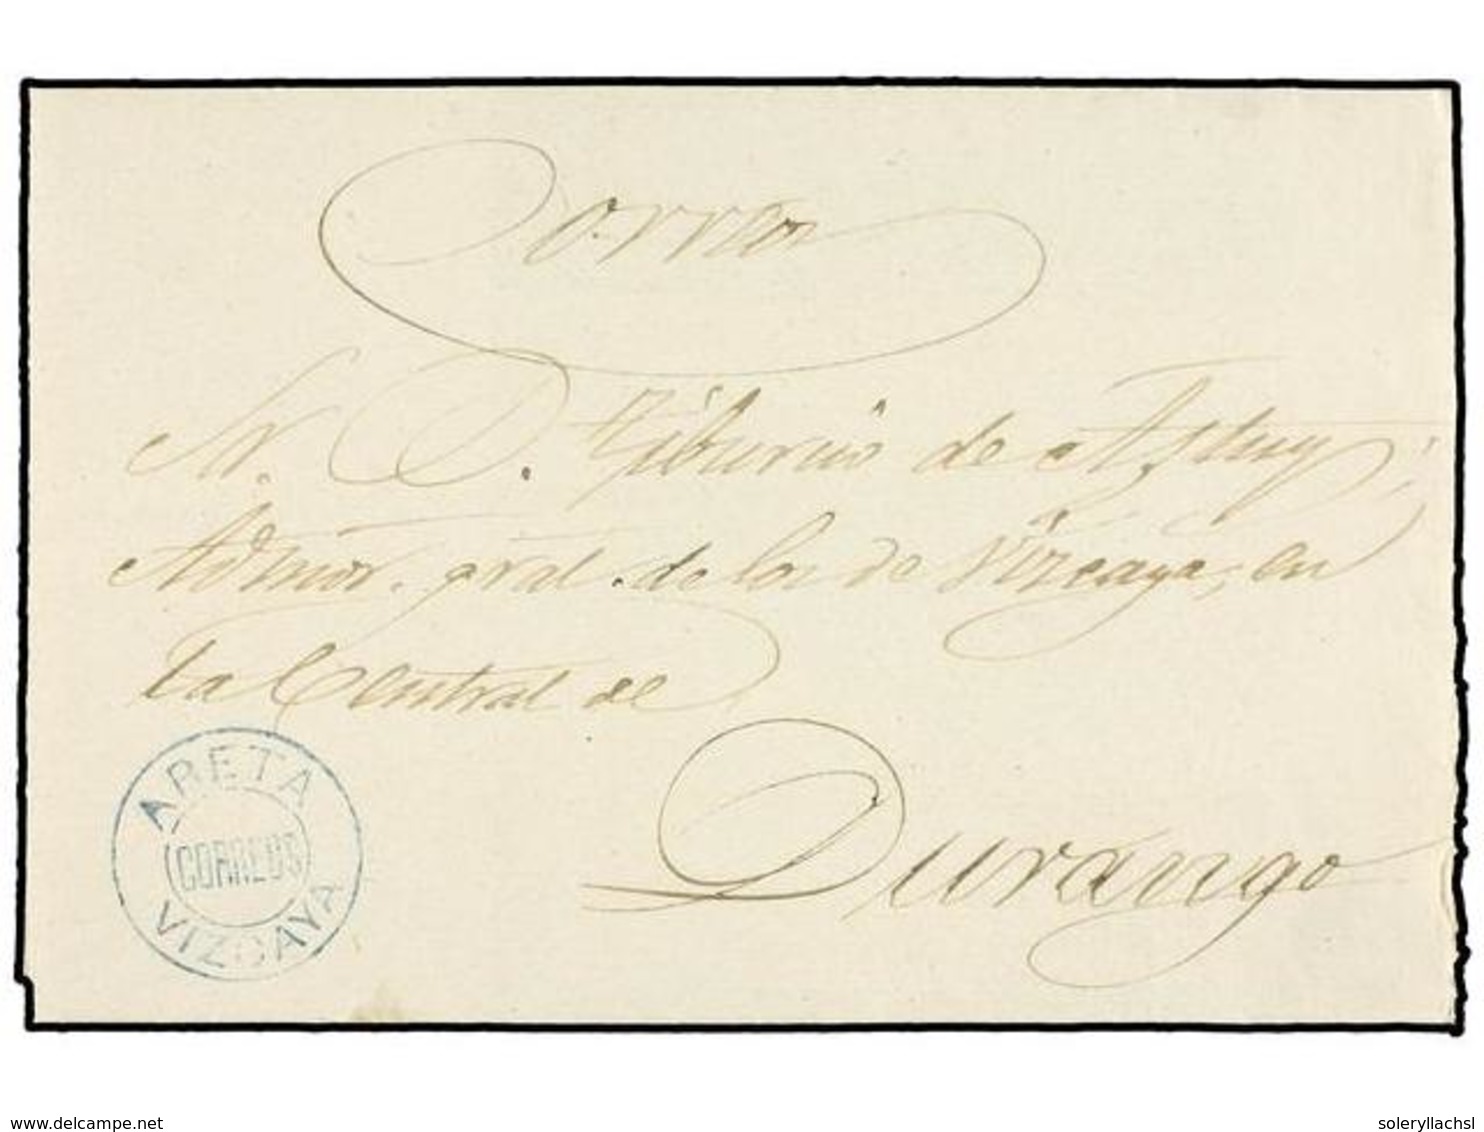 Correos
Sr. D. Tiburcio de
Admor. gral. de los de Vizcaya, en
la Central de
Durango
ARETA
CORREOS
VIZCAYA
delcampe.net
soleryllachsl